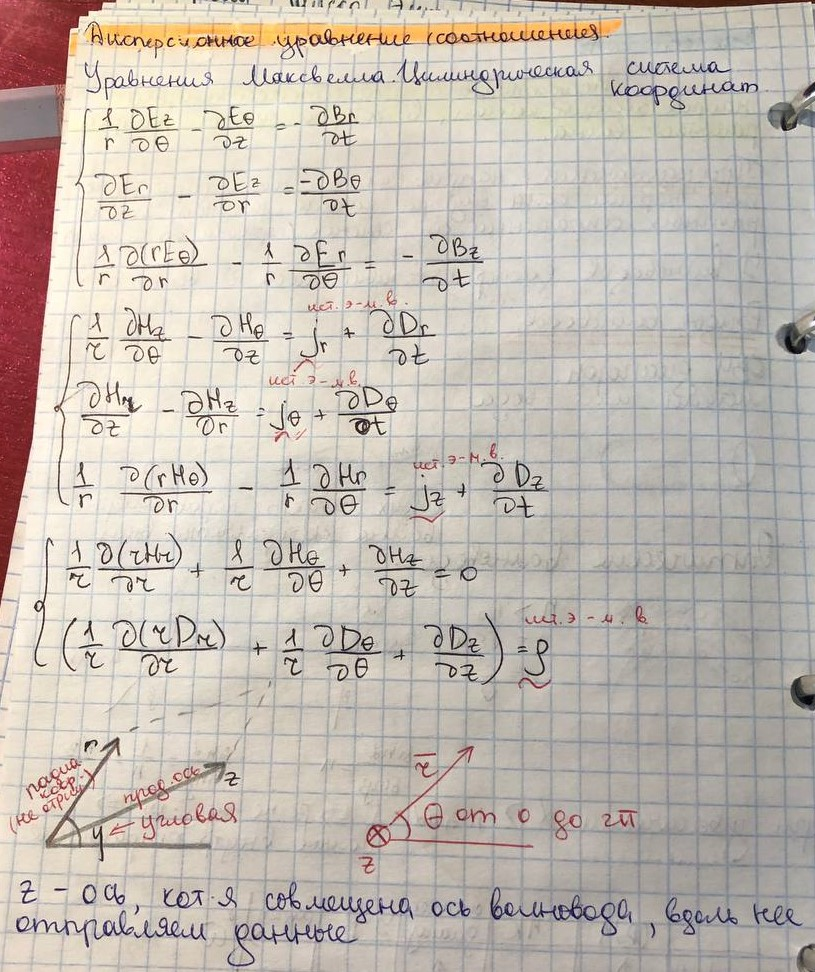 Дисперсионное уравнение (соотношение).
Уравнения Максвелла. Цилиндрическая система
координат
1/r ∂Ez/∂θ - ∂Eθ/∂z = - ∂Br/∂t
∂Er/∂z - ∂Ez/∂r = -∂Bθ/∂t
1/r ∂(rEθ)/∂r - 1/r ∂Er/∂θ = - ∂Bz/∂t
ист. э-м. в.
1/r ∂Hz/∂θ - ∂Hθ/∂z = jr + ∂Dr/∂t
ист. э-м. в.
∂Hr/∂z - ∂Hz/∂r = jθ + ∂Dθ/∂t
ист. э-м. в.
1/r ∂(rHθ)/∂r - 1/r ∂Hr/∂θ = jz + ∂Dz/∂t
1/r ∂(rHr)/∂r + 1/r ∂Hθ/∂θ + ∂Hz/∂z = 0
ист. э-м. в.
(1/r ∂(rDr)/∂r + 1/r ∂Dθ/∂θ + ∂Dz/∂z) = ρ
r
(не отриц.)
прод. ось z
φ ← угловая
r̄
θ от 0 до 2π
z
z - ось, кот-я совмещена ось волновода, вдоль нее
отправляем данные